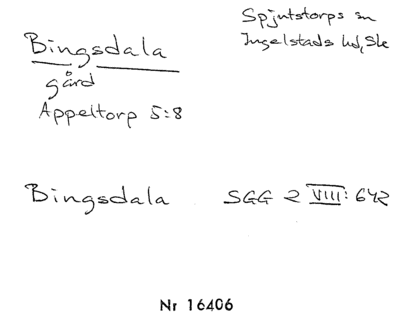 Spjutstorps sn
Ingelstads hd, Sk
Bingsdala
gård
Äppeltorp 5:8
Bingsdala SGG 2 VIII: 642
Nr 16406